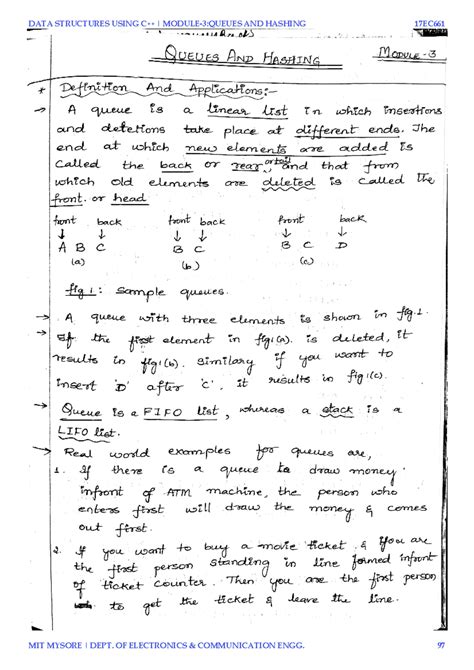 DATA STRUCTURES USING C++ | MODULE-3:QUEUES AND HASHING 17EC661
QUEUES AND HASHING MODULE-3
* Definition And Applications:-
→ A queue is a linear list in which insertions
and deletions take place at different ends. The
end at which new elements are added is
called the back or rear or tail and that from
which old elements are deleted is called the
front. or head
front back front back front back
↓ ↓ ↓ ↓ ↓ ↓
A B C B C B C D
(a) (b) (c)
fig 1: Sample queues.
→ A queue with three elements is shown in fig 1.
→ If the first element in fig1(a). is deleted, it
results in fig1(b). Similarly if you want to
insert 'D' after 'C', it results in fig1(c).
→ Queue is a FIFO list, whereas a stack is a
LIFO list.
→ Real world examples for queues are,
1. If there is a queue to draw money
infront of ATM machine, the person who
enters first will draw the money & comes
out first.
2. If you want to buy a movie ticket & If you are
the first person standing in line formed infront
of ticket counter. Then you are the first person
to get the ticket & leave the line.
MIT MYSORE | DEPT. OF ELECTRONICS & COMMUNICATION ENGG. 97